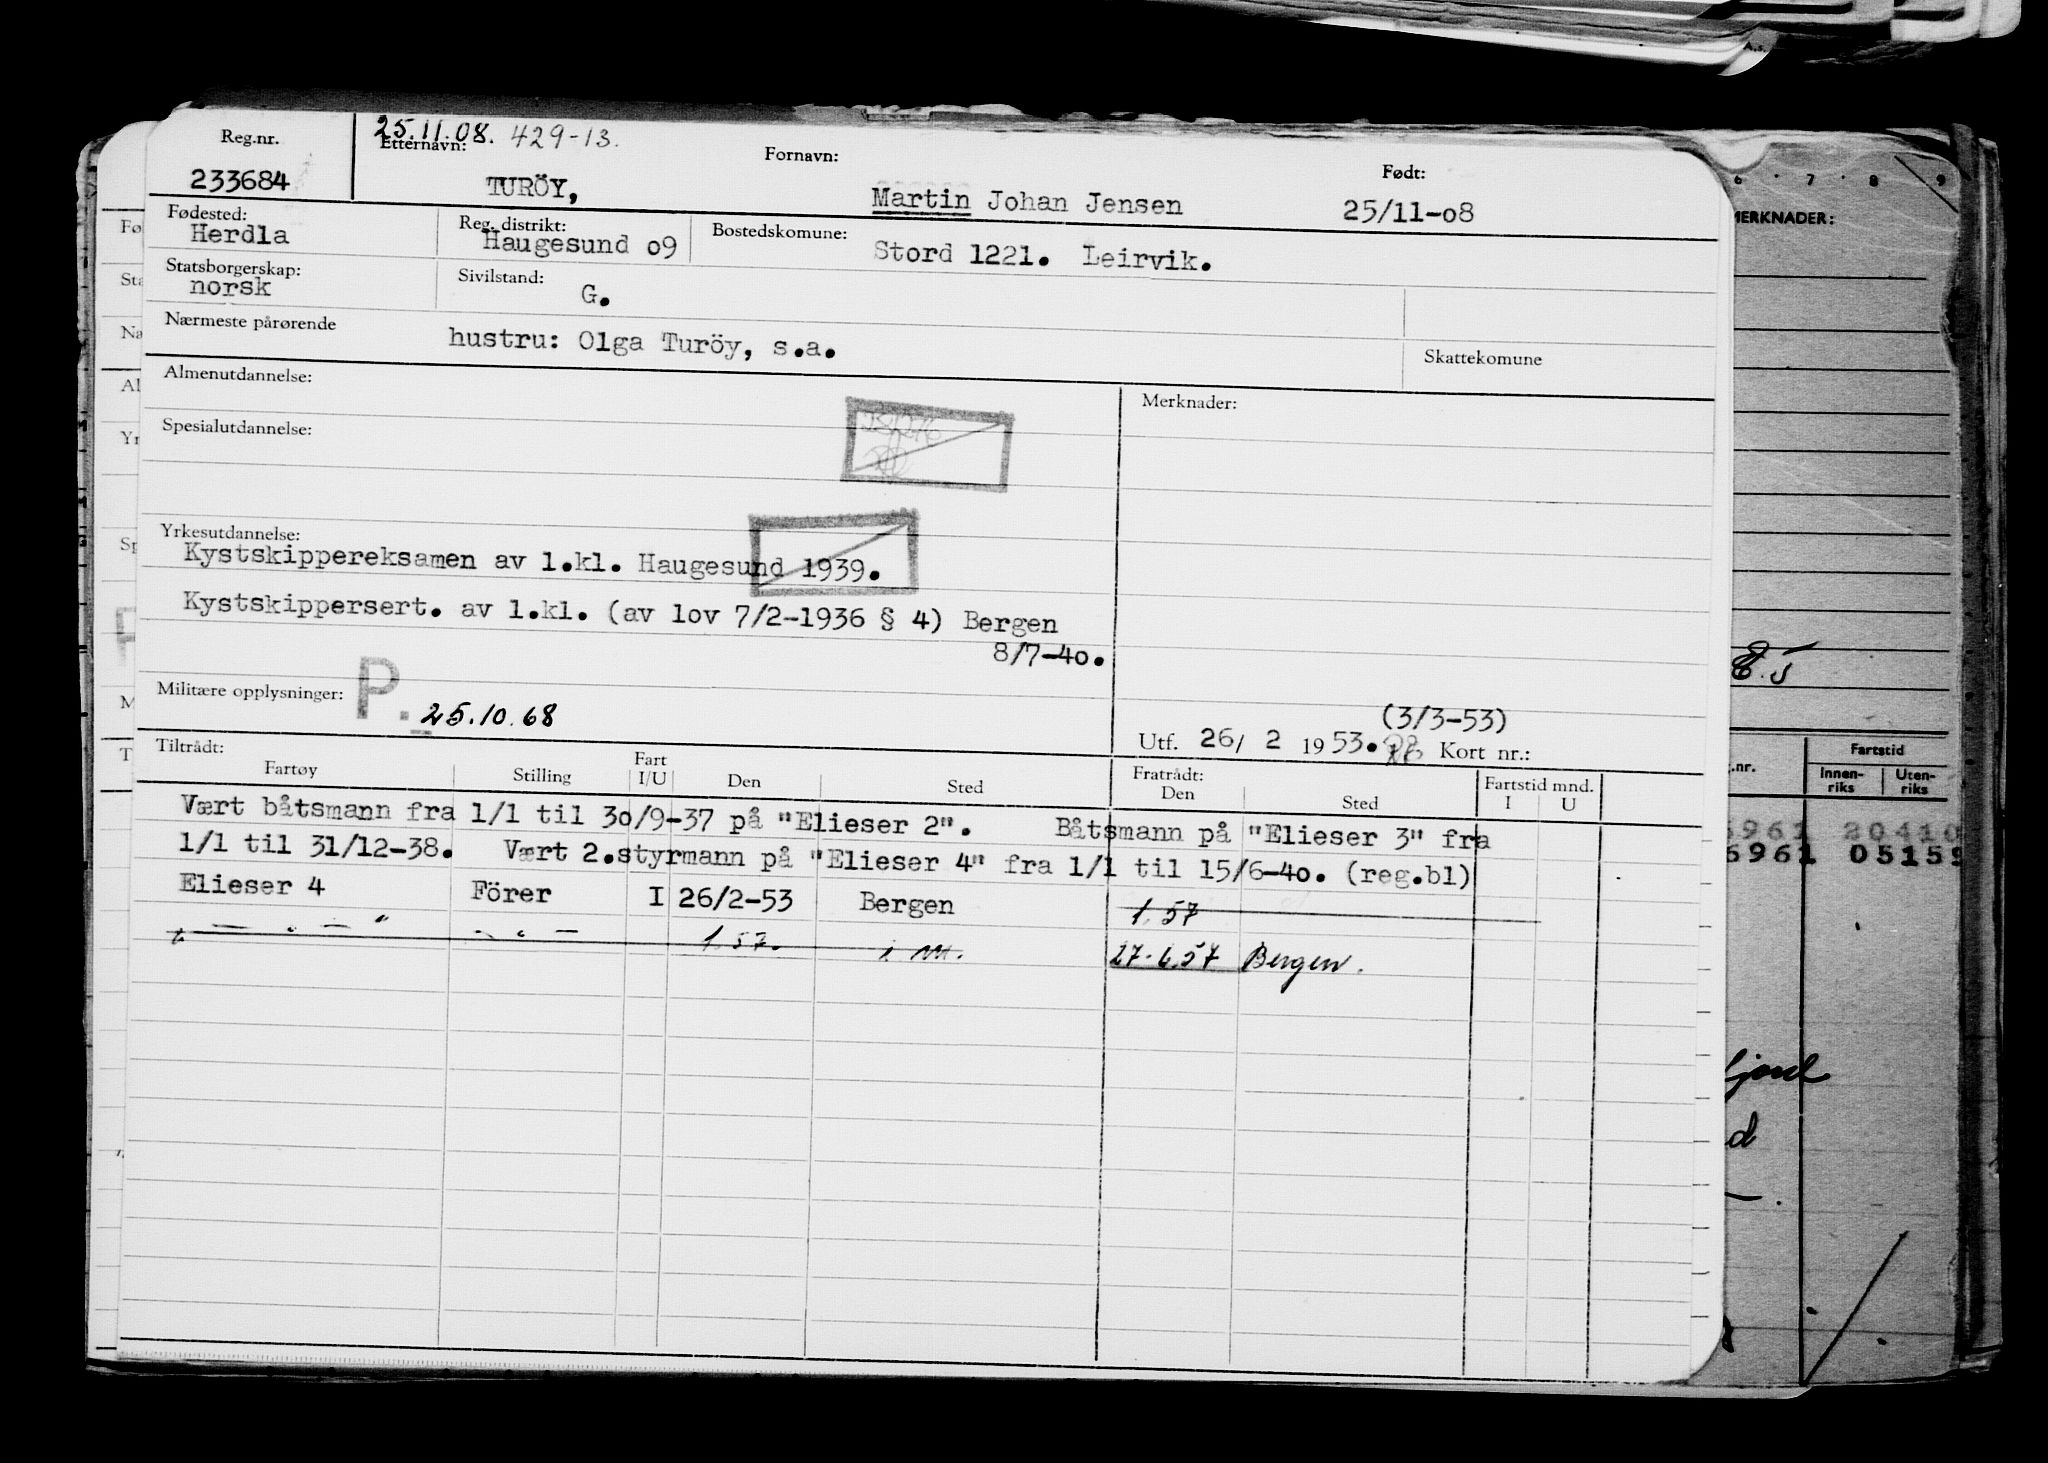 Reg.nr. 25.11.08. 429-13.
Etternavn: Fornavn: Født:
233684 TURÖY, Martin Johan Jensen 25/11-08
Fødested: Reg. distrikt: Bostedskomune:
Herdla Haugesund 09 Stord 1221. Leirvik.
Statsborgerskap: Sivilstand:
norsk G.
Nærmeste pårørende
hustru: Olga Turöy, s.a. Skattekomune
Almenutdannelse: Merknader:
Spesialutdannelse:
Yrkesutdannelse:
Kystskippereksamen av 1.kl. Haugesund 1939.
Kystskippersert. av 1.kl. (av lov 7/2-1936 § 4) Bergen
8/7-40.
Militære opplysninger: P. 25.10.68
(3/3-53)
Utf. 26/ 2 1953. Kort nr.:
Tiltrådt: Fratrådt:
Fartøy Stilling Fart I/U Den Sted Den Sted Fartstid mnd. I U
Vært båtsmann fra 1/1 til 30/9-37 på "Elieser 2". Båtsmann på "Elieser 3" fra
1/1 til 31/12-38. Vært 2.styrmann på "Elieser 4" fra 1/1 til 15/6-40. (reg.bl)
Elieser 4 Förer I 26/2-53 Bergen 1.57
— " — " — " — 1.57. i m. 27.6.57 Bergen.
6 7 8 9
MERKNADER:
E.J
.nr. Fartstid
Innen-riks Uten-riks
6961 20410
6961 05159
fjord
d